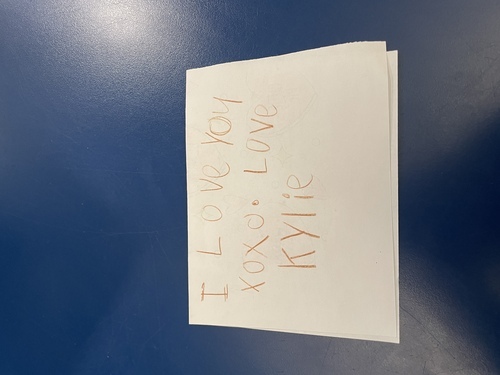 I Love You
xoxo. Love
Kylie